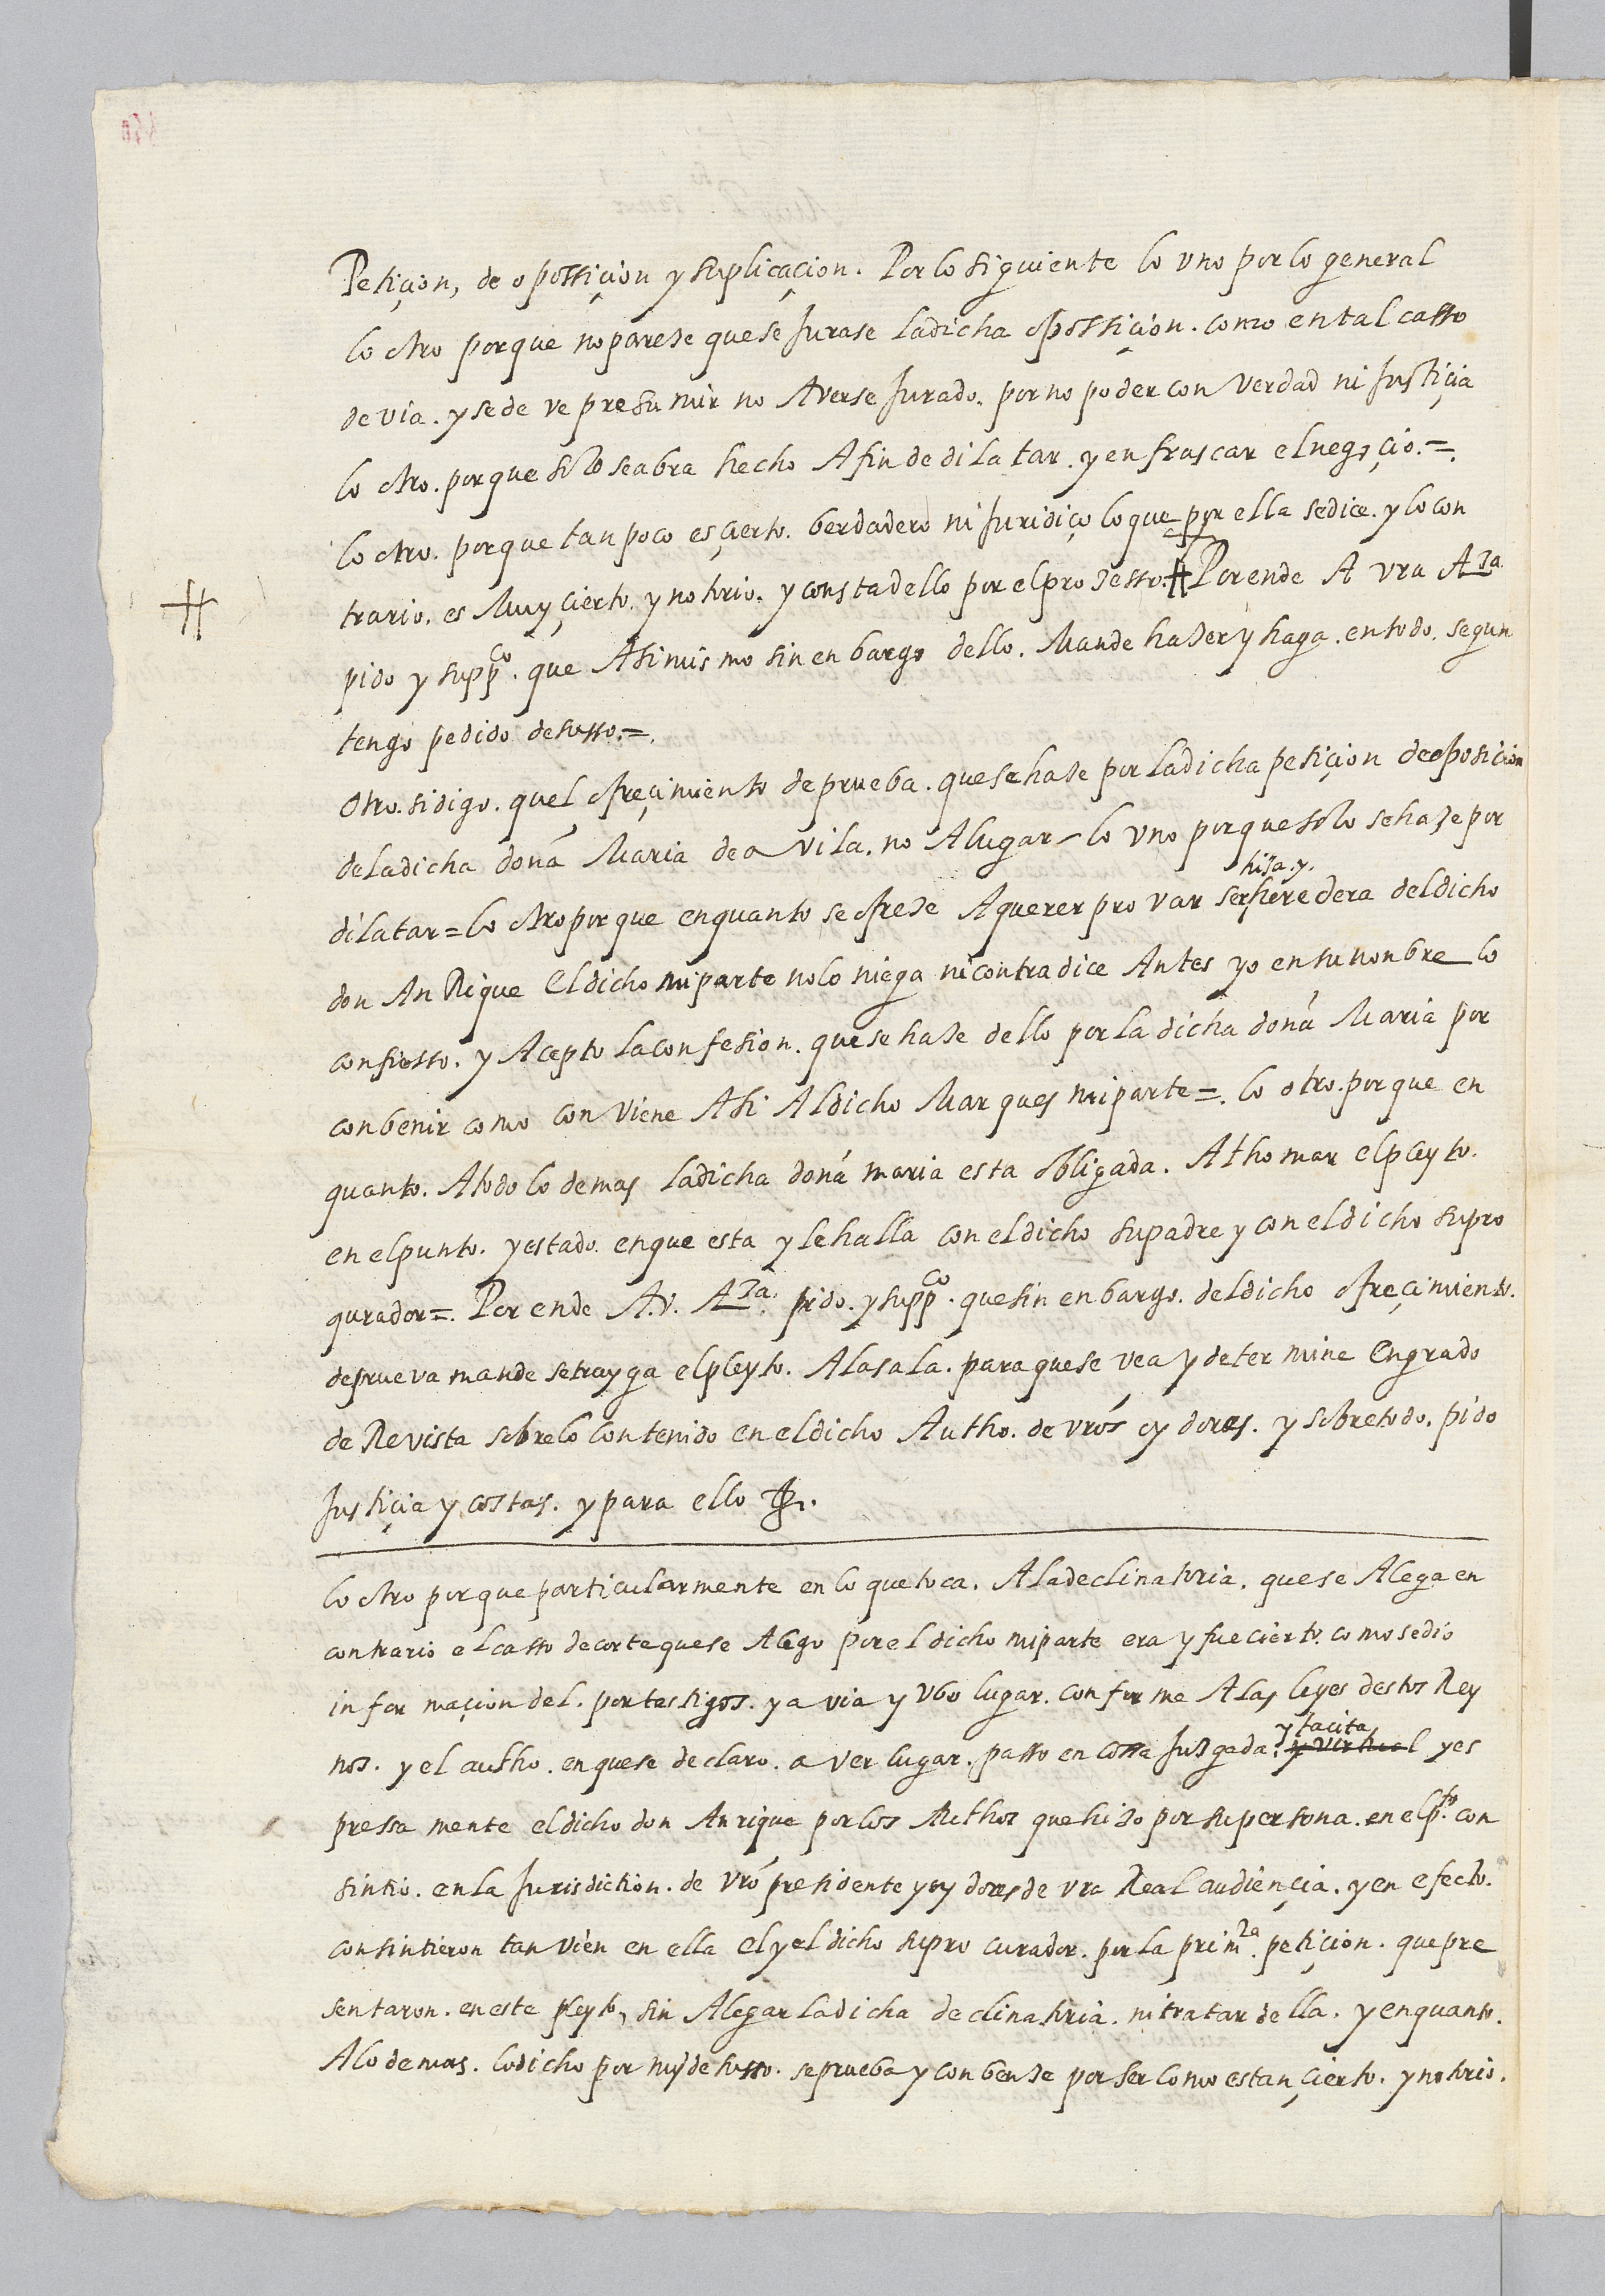 Petiçion, de opossiçion y suplicaçion. Por lo siguiente lo vno por lo general
lo otro porque no pareze que se Jurase la dicha opossiçion. como en tal casso
devia. y se deve presumir no Averse Jurado. por no poder con verdad ni Justiçia
lo otro. porque solo se abra hecho A fin de dilatar. y enfrascar el negoçio.=.
lo otro. porque tan poco es çierto. berdadero ni Juridiço lo que por ella se dice. y lo con
trario. es Muy çierto. y notorio. y consta dello por el prozesso. # Por ende A vra Aza.
# pido y suppco. que Asimismo sin enbargo dello. Mande hazer y haga. en todo. segun
tengo pedido de susso.=.
Otro. si digo. quel ofreçimiento de prueba. que se haze por la dicha petiçion de oposicion
de la dicha doña Maria de avila. no A lugar lo vno porque solo se haze por
dilatar=lo otro porque en quanto se ofreze A querer provar ser hija.y. heredera del dicho
don AnRique El dicho mi parte no lo niega ni contradice Antes yo en su nonbre lo
confiesso. y Acepto la confesion. que se haze dello por la dicha doña Maria por
conbenir como conviene Asi Al dicho Marques mi parte=. lo otro. porque en
quanto. A todo lo demas la dicha doña maria esta obligada. A thomar el pleyto.
en el punto. y estado. en que esta y le halla con el dicho su padre y con el dicho su pro
qurador=. Por ende A.v. Aza. pido. y suppco. que sin enbargo. del dicho ofreçimiento.
de prueva mande se trayga el pleyto. A la sala. para que se vea y determine En grado
de Revista sobre lo contenido en el dicho Autho. de vros oydores. y sobre todo. pido
Justiçia y costas. y para ello &.
lo otro porque particularmente en lo que toca. A la declinatoria. que se Alega en
contrario el casso de corte que se Alego por el dicho mi parte era y fue cierto. como se dio
informaçion del. por testigos. y avia y vbo lugar. conforme A las leyes destos Rey
nos. y el autho. en que se declaro. aver lugar. passo en cossa Juzgada. y tacita y virtual y es
pressamente el dicho don Anrique por los Authos que hizo por su persona. en el pto. con
sintio. en la Jurisdiction. de vro presidente y oydores de vra Real audiençia. y en efecto.
consintieron tanvien en ella el y el dicho su procurador. por la prim.ra petiçion. que pre
sentaron. en este pleyto, sin Alegar la dicha declinatoria. ni tratar della. y en quanto.
A lo demas. lo dicho por mi de susso. se prueba y conbenze por ser como es tan çierto. y notorio.